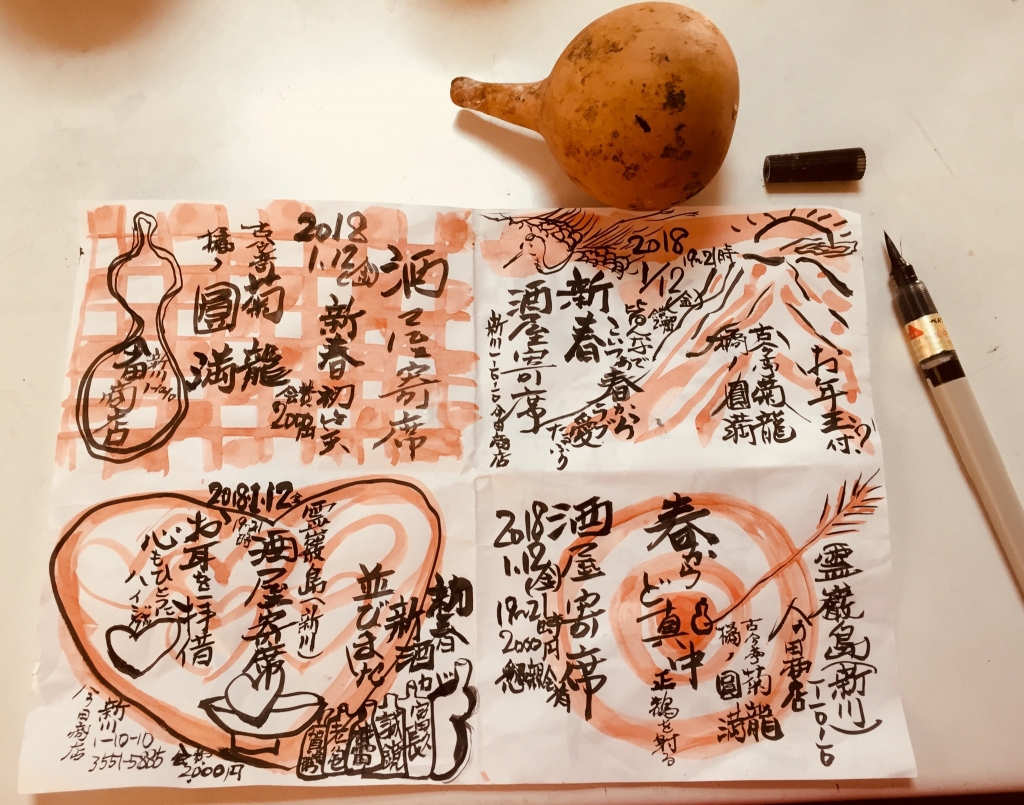 酒屋寄席
2018
1.12金
新春初笑
会費
2000円
古今亭菊龍
橘ノ圓満
新川
1-10-10
今田商店
2018
1/12金
19-21時
新春
酒屋寄席
新川1-10-10今田商店
お年玉付
古今亭菊龍
橘ノ圓満
2018.1.12金
19-21時
霊巌島へ新川
酒屋寄席
お耳を拝借
初春
新酒
並びました
今田商店
新川
1-10-10
3551-5885
会費
2000円
春から
ど真中
正鵠を射る
霊巌島(新川)
1-10-10
今田商店
古今亭菊龍
橘ノ圓満
酒屋寄席
2018
1.12金
19-21時
2000円
懇親会有